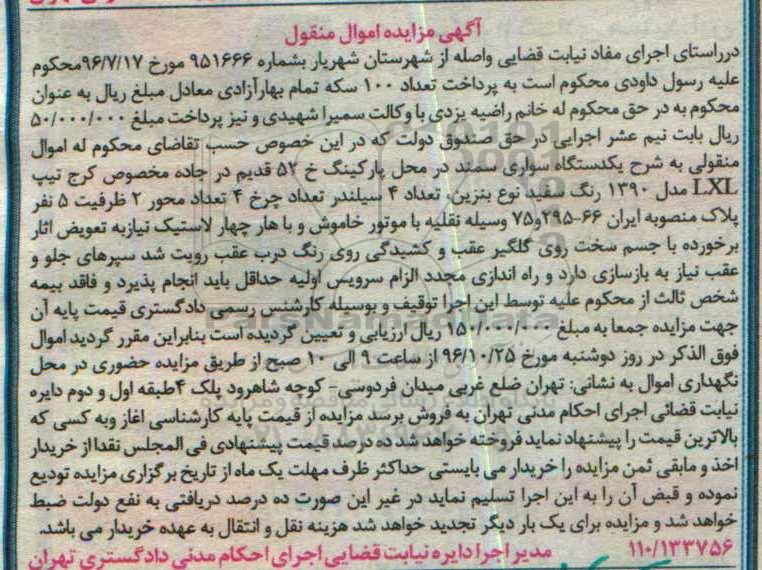 آگهی مزایده اموال منقول
درراستای اجرای مفاد نیابت قضایی واصله از شهرستان شهریار بشماره ۹۵۱۶۶۶ مورخ ۹۶/۷/۱۷محکوم
علیه رسول داودی محکوم است به پرداخت تعداد ۱۰۰ سکه تمام بهارآزادی معادل مبلغ ریال به عنوان
محکوم به در حق محکوم له خانم راضیه یزدی با وکالت سمیرا شهیدی و نیز پرداخت مبلغ ۵۰/۰۰۰/۰۰۰
ریال بابت نیم عشر اجرایی در حق صندوق دولت که در این خصوص حسب تقاضای محکوم له اموال
منقولی به شرح یکدستگاه سواری سمند در محل پارکینگ خ ۵۲ قدیم در جاده مخصوص کرج تیپ
LXL مدل ۱۳۹۰ رنگ سفید نوع بنزین، تعداد ۴ سیلندر تعداد چرخ ۴ تعداد محور ۲ ظرفیت ۵ نفر
پلاک منصوبه ایران ۶۶-۲۹۵و۷۵ وسیله نقلیه با موتور خاموش و با هار چهار لاستیک نیازبه تعویض اثار
برخورده با جسم سخت روی گلگیر عقب و کشیدگی روی رنگ درب عقب رویت شد سپرهای جلو و
عقب نیاز به بازسازی دارد و راه اندازی مجدد الزام سرویس اولیه حداقل باید انجام پذیرد و فاقد بیمه
شخص ثالث از محکوم علیه توسط این اجرا توقیف و بوسیله کارشنس رسمی دادگستری قیمت پایه آن
جهت مزایده جمعا به مبلغ ۱۵۰/۰۰۰/۰۰۰ ریال ارزیابی و تعیین گردیده است بنابراین مقرر گردید اموال
فوق الذکر در روز دوشنبه مورخ ۹۶/۱۰/۲۵ از ساعت ۹ الی ۱۰ صبح از طریق مزایده حضوری در محل
نگهداری اموال به نشانی: تهران ضلع غربی میدان فردوسی- کوچه شاهرود پلک ۴طبقه اول و دوم دایره
نیابت قضائی اجرای احکام مدنی تهران به فروش برسد مزایده از قیمت پایه کارشناسی اغاز وبه کسی که
بالاترین قیمت را پیشنهاد نماید فروخته خواهد شد ده درصد قیمت پیشنهادی فی المجلس نقدا از خریدار
اخذ و مابقی ثمن مزایده را خریدار می بایستی حداکثر ظرف مهلت یک ماه از تاریخ برگزاری مزایده تودیع
نموده و قبض آن را به این اجرا تسلیم نماید در غیر این صورت ده درصد دریافتی به نفع دولت ضبط
خواهد شد و مزایده برای یک بار دیگر تجدید خواهد شد هزینه نقل و انتقال به عهده خریدار می باشد.
۱۱۰/۱۳۳۷۵۶ مدیر اجرا دایره نیابت قضایی اجرای احکام مدنی دادگستری تهران